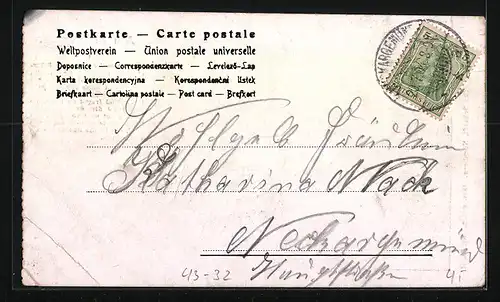 Postkarte — Carte postale
Weltpostverein — Union postale universelle
Dopisnice — Correspondenzkarte — Levelező-Lap
Karta korespondencyjna — Korespondenční lístek
Briefkaart — Cartolina postale — Post card — Brefkort
NECKARGEMÜND
Wohlgeb Fräulein
Katharina Nack
Neckargemünd
Hauptstraße
43-32
4.-